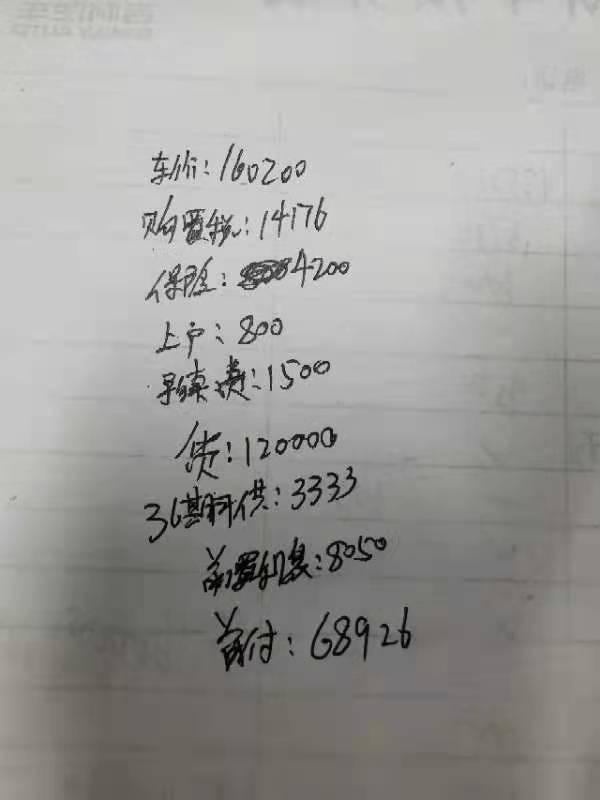 车价：160200
购置税：14176
保险：4200
上户：800
手续费：1500
贷：120000
36期月供：3333
前置利息：8050
首付：68926